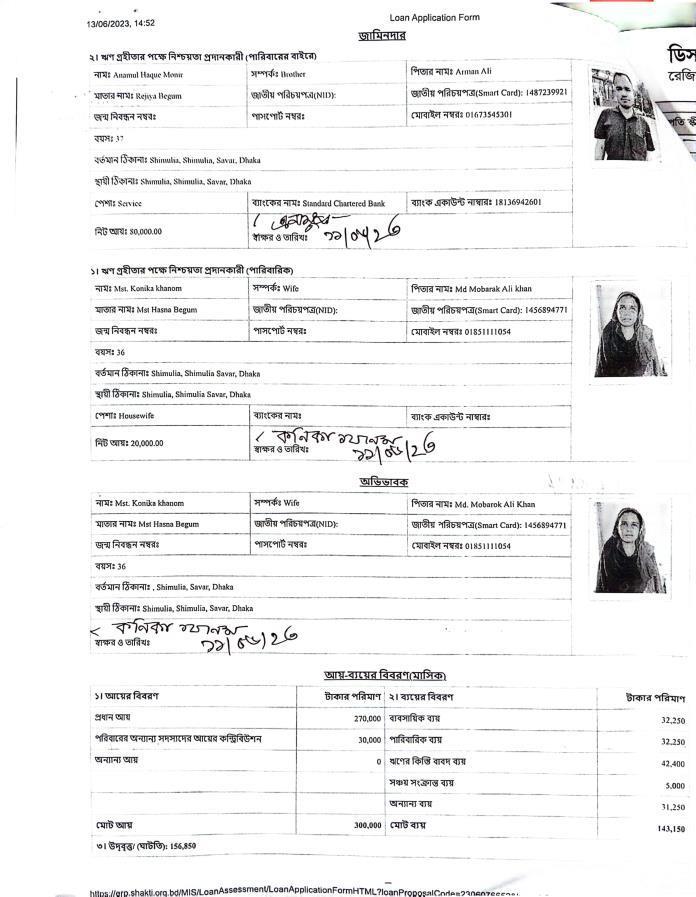 13/06/2023, 14:52
Loan Application Form
জামিনদার
২। ঋণ গ্রহীতার পক্ষে নিশ্চয়তা প্রদানকারী (পারিবারের বাইরে)
নামঃ Anamul Haque Monir সম্পর্কঃ Brother পিতার নামঃ Arman Ali
মাতার নামঃ Rejiya Begum জাতীয় পরিচয়পত্র(NID): জাতীয় পরিচয়পত্র(Smart Card): 1487239921
জন্ম নিবন্ধন নম্বরঃ পাসপোর্ট নম্বরঃ মোবাইল নম্বরঃ 01673545301
বয়সঃ 37
বর্তমান ঠিকানাঃ Shimulia, Shimulia, Savar, Dhaka
স্থায়ী ঠিকানাঃ Shimulia, Shimulia, Savar, Dhaka
পেশাঃ Service ব্যাংকের নামঃ Standard Chartered Bank ব্যাংক একাউন্ট নাম্বারঃ 18136942601
নিট আয়ঃ 80,000.00 স্বাক্ষর ও তারিখঃ
১। ঋণ গ্রহীতার পক্ষে নিশ্চয়তা প্রদানকারী (পারিবারিক)
নামঃ Mst. Konika khanom সম্পর্কঃ Wife পিতার নামঃ Md Mobarak Ali khan
মাতার নামঃ Mst Hasna Begum জাতীয় পরিচয়পত্র(NID): জাতীয় পরিচয়পত্র(Smart Card): 1456894771
জন্ম নিবন্ধন নম্বরঃ পাসপোর্ট নম্বরঃ মোবাইল নম্বরঃ 01851111054
বয়সঃ 36
বর্তমান ঠিকানাঃ Shimulia, Shimulia Savar, Dhaka
স্থায়ী ঠিকানাঃ Shimulia, Shimulia Savar, Dhaka
পেশাঃ Housewife ব্যাংকের নামঃ ব্যাংক একাউন্ট নাম্বারঃ
নিট আয়ঃ 20,000.00 স্বাক্ষর ও তারিখঃ কনিকা খানম
অভিভাবক
নামঃ Mst. Konika khanom সম্পর্কঃ Wife পিতার নামঃ Md. Mobarok Ali Khan
মাতার নামঃ Mst Hasna Begum জাতীয় পরিচয়পত্র(NID): জাতীয় পরিচয়পত্র(Smart Card): 1456894771
জন্ম নিবন্ধন নম্বরঃ পাসপোর্ট নম্বরঃ মোবাইল নম্বরঃ 01851111054
বয়সঃ 36
বর্তমান ঠিকানাঃ , Shimulia, Savar, Dhaka
স্থায়ী ঠিকানাঃ Shimulia, Shimulia, Savar, Dhaka
কনিকা খানম
স্বাক্ষর ও তারিখঃ
আয়-ব্যয়ের বিবরণ(মাসিক)
১। আয়ের বিবরণ টাকার পরিমাণ ২। ব্যয়ের বিবরণ টাকার পরিমাণ
প্রধান আয় 270,000 ব্যবসায়িক ব্যয় 32,250
পরিবারের অন্যান্য সদস্যদের আয়ের কন্ট্রিবিউশন 30,000 পারিবারিক ব্যয় 32,250
অন্যান্য আয় 0 ঋণের কিস্তি বাবদ ব্যয় 42,400
সঞ্চয় সংক্রান্ত ব্যয় 5,000
অন্যান্য ব্যয় 31,250
মোট আয় 300,000 মোট ব্যয় 143,150
৩। উদ্বৃত্ত/ (ঘাটতি): 156,850